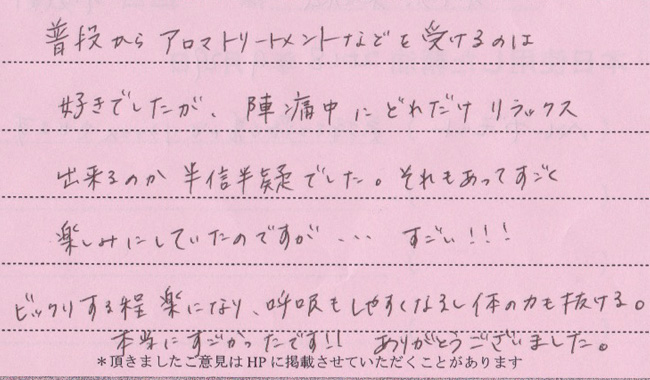 普段から アロマトリートメントなどを受けるのは
好きでしたが、陣痛中にどれだけリラックス
出来るのか半信半疑でした。それもあってすごく
楽しみにしていたのですが ... すごい!!!
ビックリする程 楽になり、呼吸もしやすくなるし体の力も抜ける。
本当にすごかったです!! ありがとうございました。
＊頂きましたご意見はHPに掲載させていただくことがあります